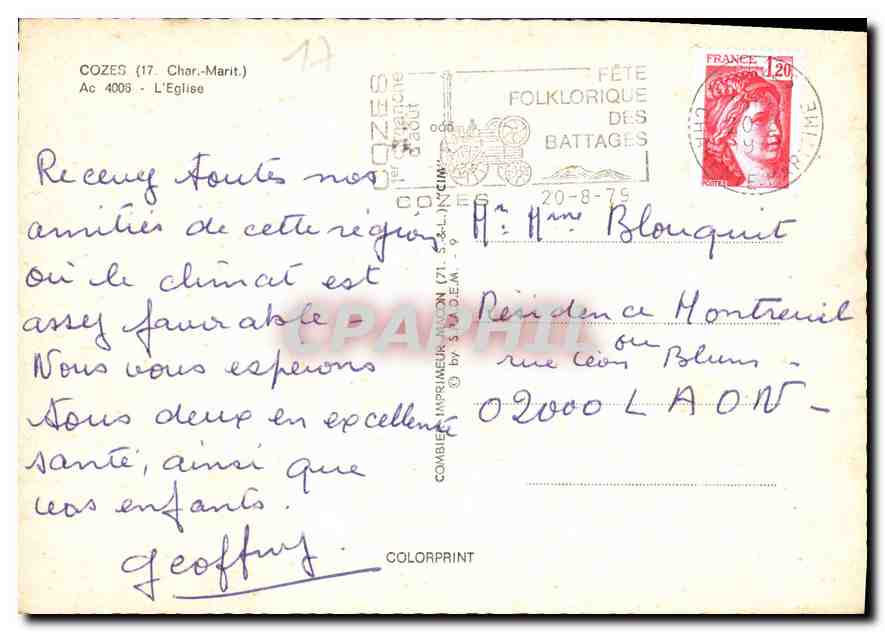 17
COZES (17. Char.-Marit.)
Ac 4006 - L'Eglise
COZES
1er dimanche
d'août
FÊTE
FOLKLORIQUE
DES
BATTAGES
COZES 20-8-79
FRANCE 1,20
POSTES
MARITIME
Recevez toutes nos
amitiés de cette région
où le climat est
assez favorable -
Nous vous espérons
tous deux en excellente
santé, ainsi que
vos enfants.
Geoffroy.
COMBIER IMPRIMEUR MACON (71. S.-&-L.) "CIM"
© by S.P.A.D.E.M. - 9
COLORPRINT
Mr. Mme Blouquit
Résidence Montreuil
ou
rue Léon Blum -
02000 LAON -
CPAPHIL